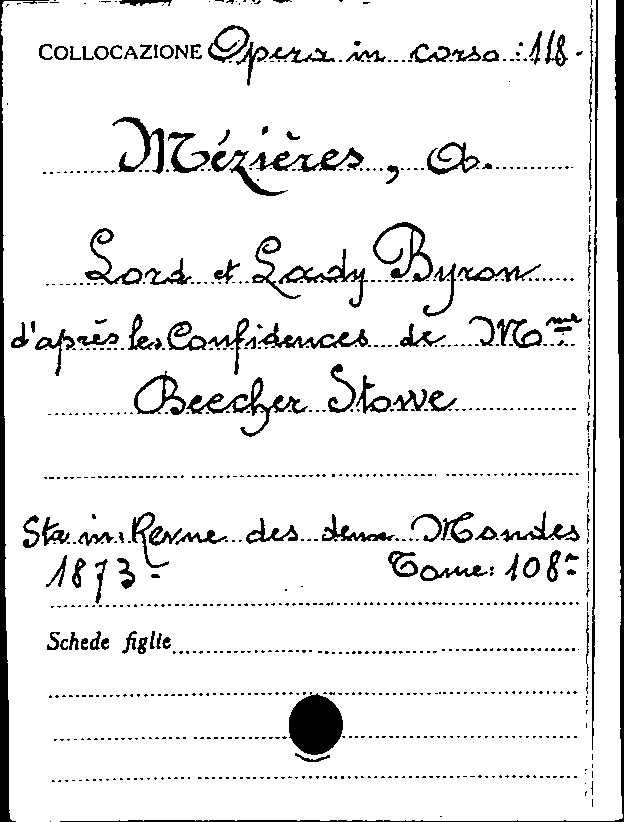 COLLOCAZIONE Opera in corso: 118.
Mézières, A.
Lord et Lady Byron
d'après les Confidences de Mme
Beecher Stowe
Sta in: Revue des deux Mondes
1873- Tome: 108-
Schede figlie